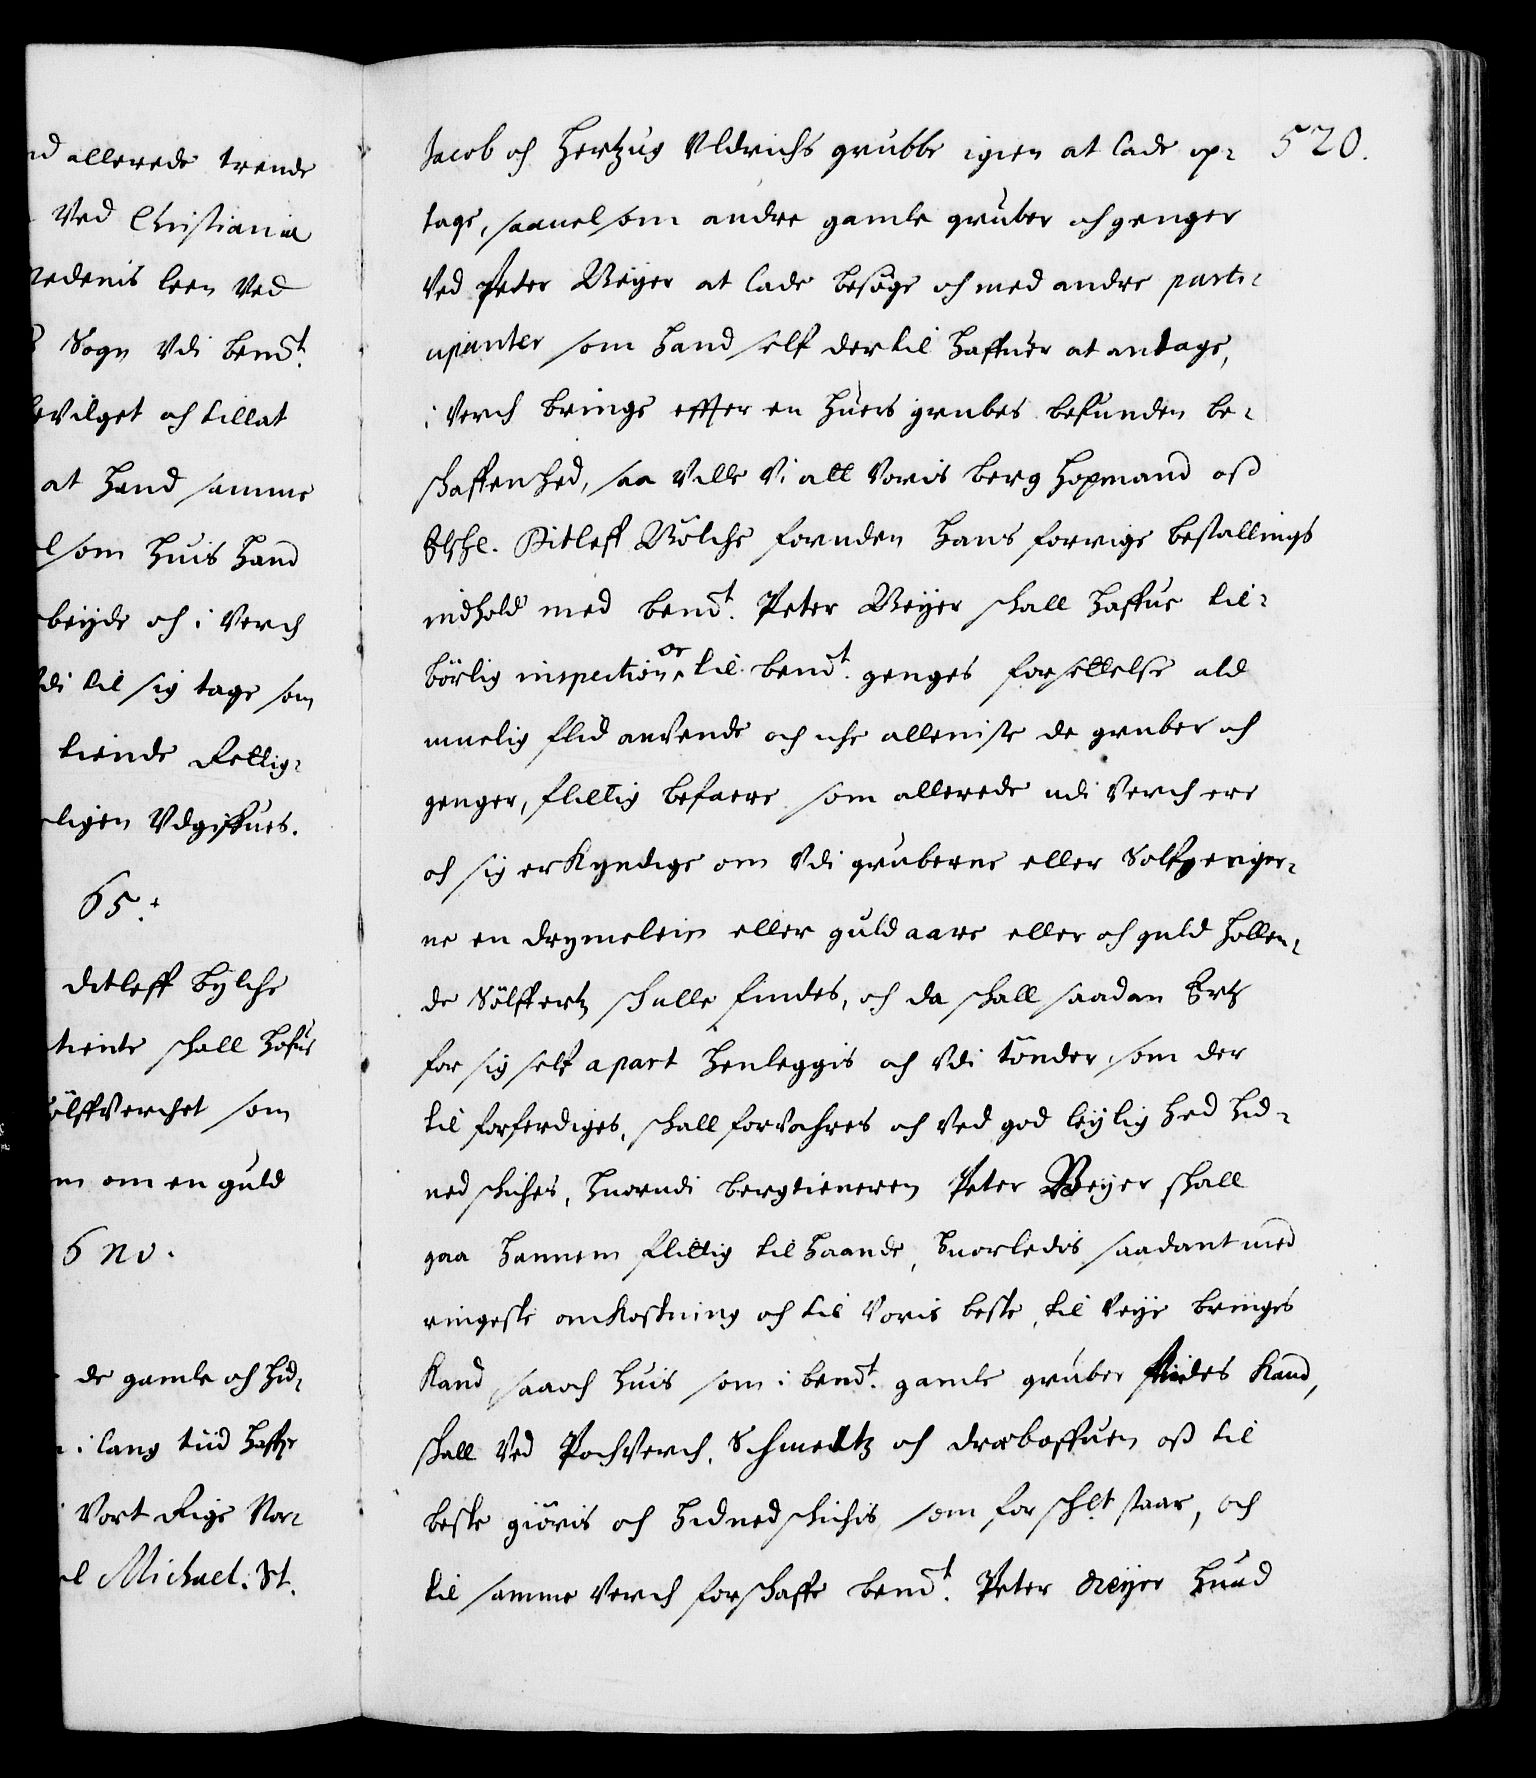 nd allerede trende
Ved Christiania
redenis leen Ved
Sogn Vdi bemt.
bevilget och tillat
at hand samme
el som huis hand
beyde och i Verch
di til sig tage som
tiende Rettig-
ligen Vdgiffues.
65.
ditleff bylche
tiente schall hafue
ölffverchet som
m om en guld
6 no.
de gamle och hid-
i lang tiid haffr
Vort Rige Nor-
el Michael. St.
520.
Jacob och Hertzug Vldrichs grubbe igien at lade op-
tage, saauelsom andre gamle gruber och genger
Ved Peter Weyer at lade besöge och med andre parti-
cipanter som hand self dertil haffuer at antage,
i Verch bringe effter en huers grubes befunden be-
schaffenhed, saa Ville Vi att Voris berg hopmand oss
Elschl. Ditleff Bölche foruden hans forrige bestallings
indhold med bemt. Peter Weyer schall haffue til-
börlig inspection or til bemt. genges forsettelse ald
muelig flid anvende och iche alleniste de gruber och
genger, flittig befaere som allerede udi Verch ere
och sig erkyndige om Vdi gruberne eller Solfgenger-
ne en drymelein eller guld aare eller och guld hollen-
de Sölffertz schulle findes, och da schall saadan Ertz
for sig self apart henleggis och Vdi tönder, som der
til forferdiges, schall forvahres och Ved god leylighed hid-
ned schiches, huorudi bergtieneren Peter Weyer schall
gaa hannem flittig til haande, huorledis saadant med
ringeste omkostning och til Voris beste, til Veye bringes
kand saaoch huis som i bemt. gamle gruber findes kand,
schall Ved Pochverch, Schmeltz och dreboffuen oss til
beste giöris och hidned schichis som forschlt staar, och
til samme Verch forschaffe bemt. Peter Weyer huad